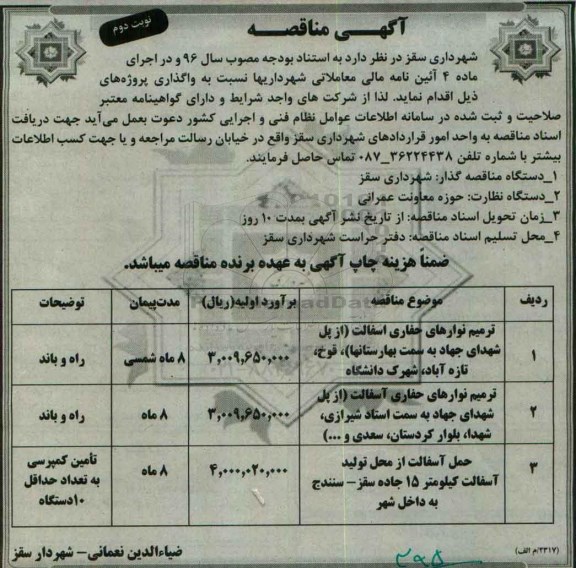 نوبت دوم
آگهـــی مناقصـــه
شهرداری سقز در نظر دارد به استناد بودجه مصوب سال ۹۶ و در اجرای
ماده ۴ آئین نامه مالی معاملاتی شهرداریها نسبت به واگذاری پروژه‌های
ذیل اقدام نماید. لذا از شرکت های واجد شرایط و دارای گواهینامه معتبر
صلاحیت و ثبت شده در سامانه اطلاعات عوامل نظام فنی و اجرایی کشور دعوت بعمل می‌آید جهت دریافت
اسناد مناقصه به واحد امور قراردادهای شهرداری سقز واقع در خیابان رسالت مراجعه و یا جهت کسب اطلاعات
بیشتر با شماره تلفن ۳۶۲۲۴۴۳۸_۰۸۷ تماس حاصل فرمایند.
۱_دستگاه مناقصه گذار: شهرداری سقز
۲_دستگاه نظارت: حوزه معاونت عمرانی
۳_زمان تحویل اسناد مناقصه: از تاریخ نشر آگهی بمدت ۱۰ روز
۴_محل تسلیم اسناد مناقصه: دفتر حراست شهرداری سقز
ضمناً هزینه چاپ آگهی به عهده برنده مناقصه میباشد.
ردیف موضوع مناقصه برآورد اولیه(ریال) مدت‌پیمان توضیحات
ترمیم نوارهای حفاری اسفالت (از پل
۱ شهدای جهاد به سمت بهارستانها)، قوخ، ۳,۰۰۹,۶۵۰,۰۰۰ ۸ ماه شمسی راه و باند
تازه آباد، شهرک دانشگاه
ترمیم نوارهای حفاری آسفالت (از پل
۲ شهدای جهاد به سمت استاد شیرازی، ۳,۰۰۹,۶۵۰,۰۰۰ ۸ ماه راه و باند
شهدا، بلوار کردستان، سعدی و ...)
حمل آسفالت از محل تولید تأمین کمپرسی
۳ آسفالت کیلومتر ۱۵ جاده سقز – سنندج ۴,۰۰۰,۰۲۰,۰۰۰ ۸ ماه به تعداد حداقل
به داخل شهر ۱۰دستگاه
(۲۳۱۷/م الف) ضیاءالدین نعمانی– شهردار سقز